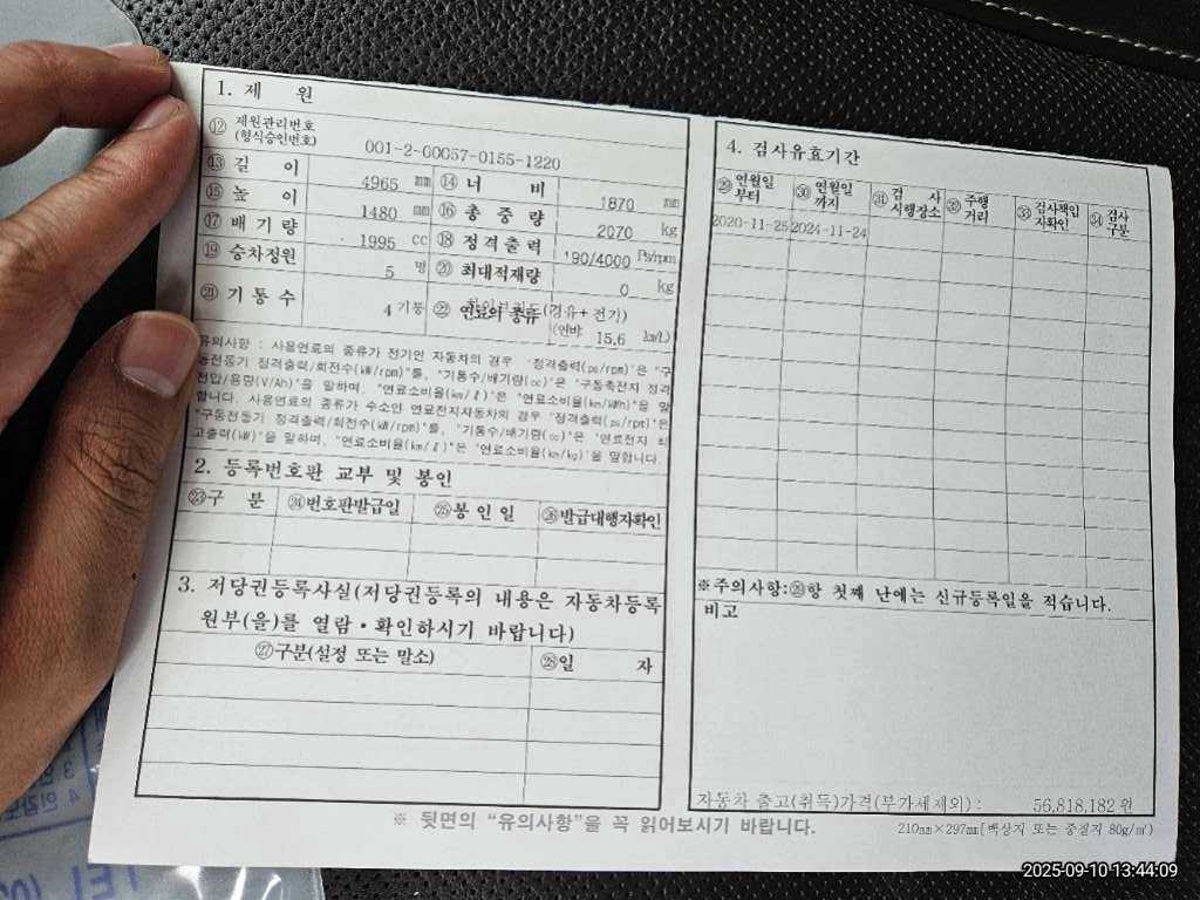 1. 제 원
⑫ 제원관리번호
(형식승인번호)
001-2-00057-0155-1220
⑬ 길 이 4965 mm ⑭ 너 비 1870 mm
⑮ 높 이 1480 mm ⑯ 총 중 량 2070 kg
⑰ 배 기 량 1995 cc ⑱ 정 격 출 력 190/4000 Ps/rpm
⑲ 승차정원 5 명 ⑳ 최대적재량 0 kg
㉑ 기 통 수 4 기통 ㉒ 연료의 종류 (경유+전기)
(연비: 15.6 km/L)
유의사항 : 사용연료의 종류가 전기인 자동차의 경우 "정격출력(ps/rpm)"은 "구
동전동기 정격출력/회전수(kW/rpm)"를, "기통수/배기량(cc)"은 "구동축전지 정격
전압/용량(V/Ah)"을 말하며, "연료소비율(km/ℓ)"은 "연료소비율(km/kWh)"을 말
합니다. 사용연료의 종류가 수소인 연료전지자동차의 경우 "정격출력(ps/rpm)"은
"구동전동기 정격출력/회전수(kW/rpm)"를, "기통수/배기량(cc)"은 "연료전지 최
고출력(kW)"을 말하며, "연료소비율(km/ℓ)"은 "연료소비율(km/kg)"을 말합니다.
2. 등록번호판 교부 및 봉인
㉓구 분 ㉔번호판발급일 ㉕봉 인 일 ㉖발급대행자확인
3. 저당권등록사실(저당권등록의 내용은 자동차등록
원부(을)를 열람·확인하시기 바랍니다)
㉗구분(설정 또는 말소) ㉘일 자
4. 검사유효기간
㉙ 연월일
부터
㉚ 연월일
까지
㉛ 검 사
시행장소
㉜ 주행
거리
㉝ 검사책임
자확인
㉞ 검사
구분
2020-11-25 2024-11-24
※주의사항:㉙항 첫째 난에는 신규등록일을 적습니다.
비고
자동차 출고(취득)가격(부가세제외) : 56,818,182 원
※ 뒷면의 "유의사항"을 꼭 읽어보시기 바랍니다.
210mm×297mm[백상지 또는 중질지 80g/㎡)
2025-09-10 13:44:09